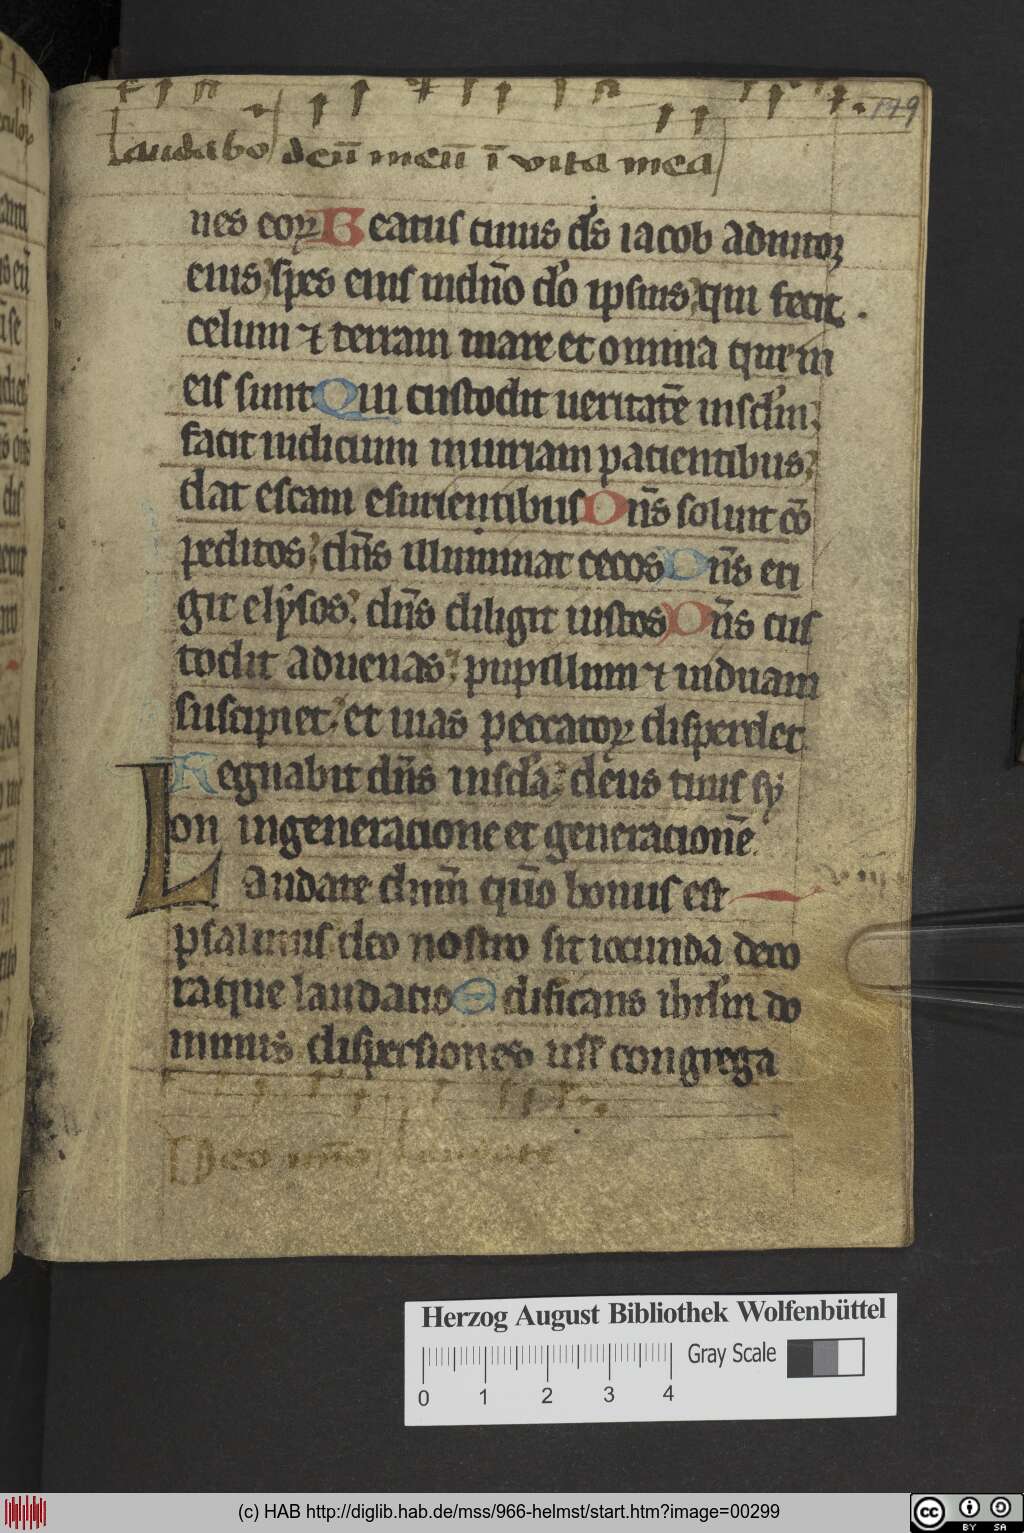 149
Laudabo deū meū ī vita mea
nes eoꝝ Beatus cuius ds̄ iacob adiutoꝝ
eius spes eius indn̄o do ipsius qui fecit
celum ⁊ terram mare et omnia que in
eis sunt Qui custodit ueritatē inscłm
facit iudicium iniuriam pacientibus
dat escam esurientibus Dn̄s soluit cō
peditos dn̄s illuminat cecos Dn̄s eri
git elẏsos dn̄s diligit iustos Dn̄s cus
todit aduenas pupillum ⁊ uiduam
suscipiet et uias peccatoꝝ disperdet
Regnabit dn̄s inscła deus tuus sẏ
on ingeneracione et generacionē
Laudate dnm̄ qm̄o bonus est
psalmus deo nostro sit iocunda deco
raque laudatio Edificans ihrłm do
minus dispersiones isłˀ congrega
Deo nr̄o laudate
Herzog August Bibliothek Wolfenbüttel
Gray Scale
0 1 2 3 4
(c) HAB http://diglib.hab.de/mss/966-helmst/start.htm?image=00299
cc BY SA